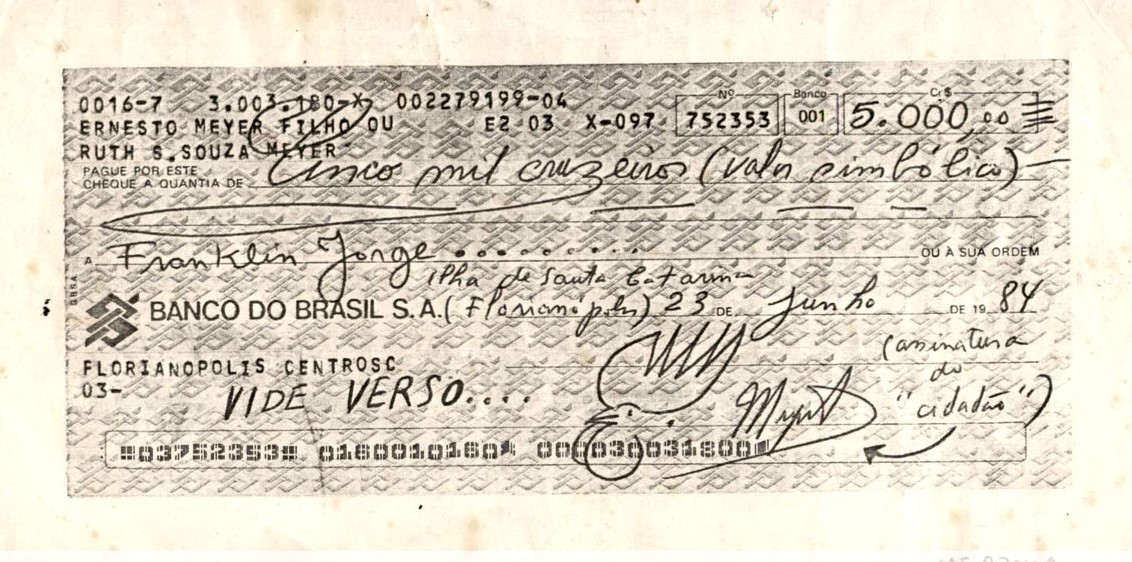 0016-7 3.003.180-X 002279199-04
Nº Banco Cr$
ERNESTO MEYER FILHO OU E2 03 X-097 752353 001 5.000,00
RUTH S.SOUZA MEYER
PAGUE POR ESTE
CHEQUE A QUANTIA DE Cinco mil cruzeiros (valor simbólico)
A Franklin Jorge ............ OU À SUA ORDEM
Ilha de Santa Catarina
BANCO DO BRASIL S.A. (Florianópolis) 23 DE Junho DE 19 84
FLORIANOPOLIS CENTROSC
03-
VIDE VERSO....
(assinatura
do
"cidadão")
037523538 0160010160 000030031800